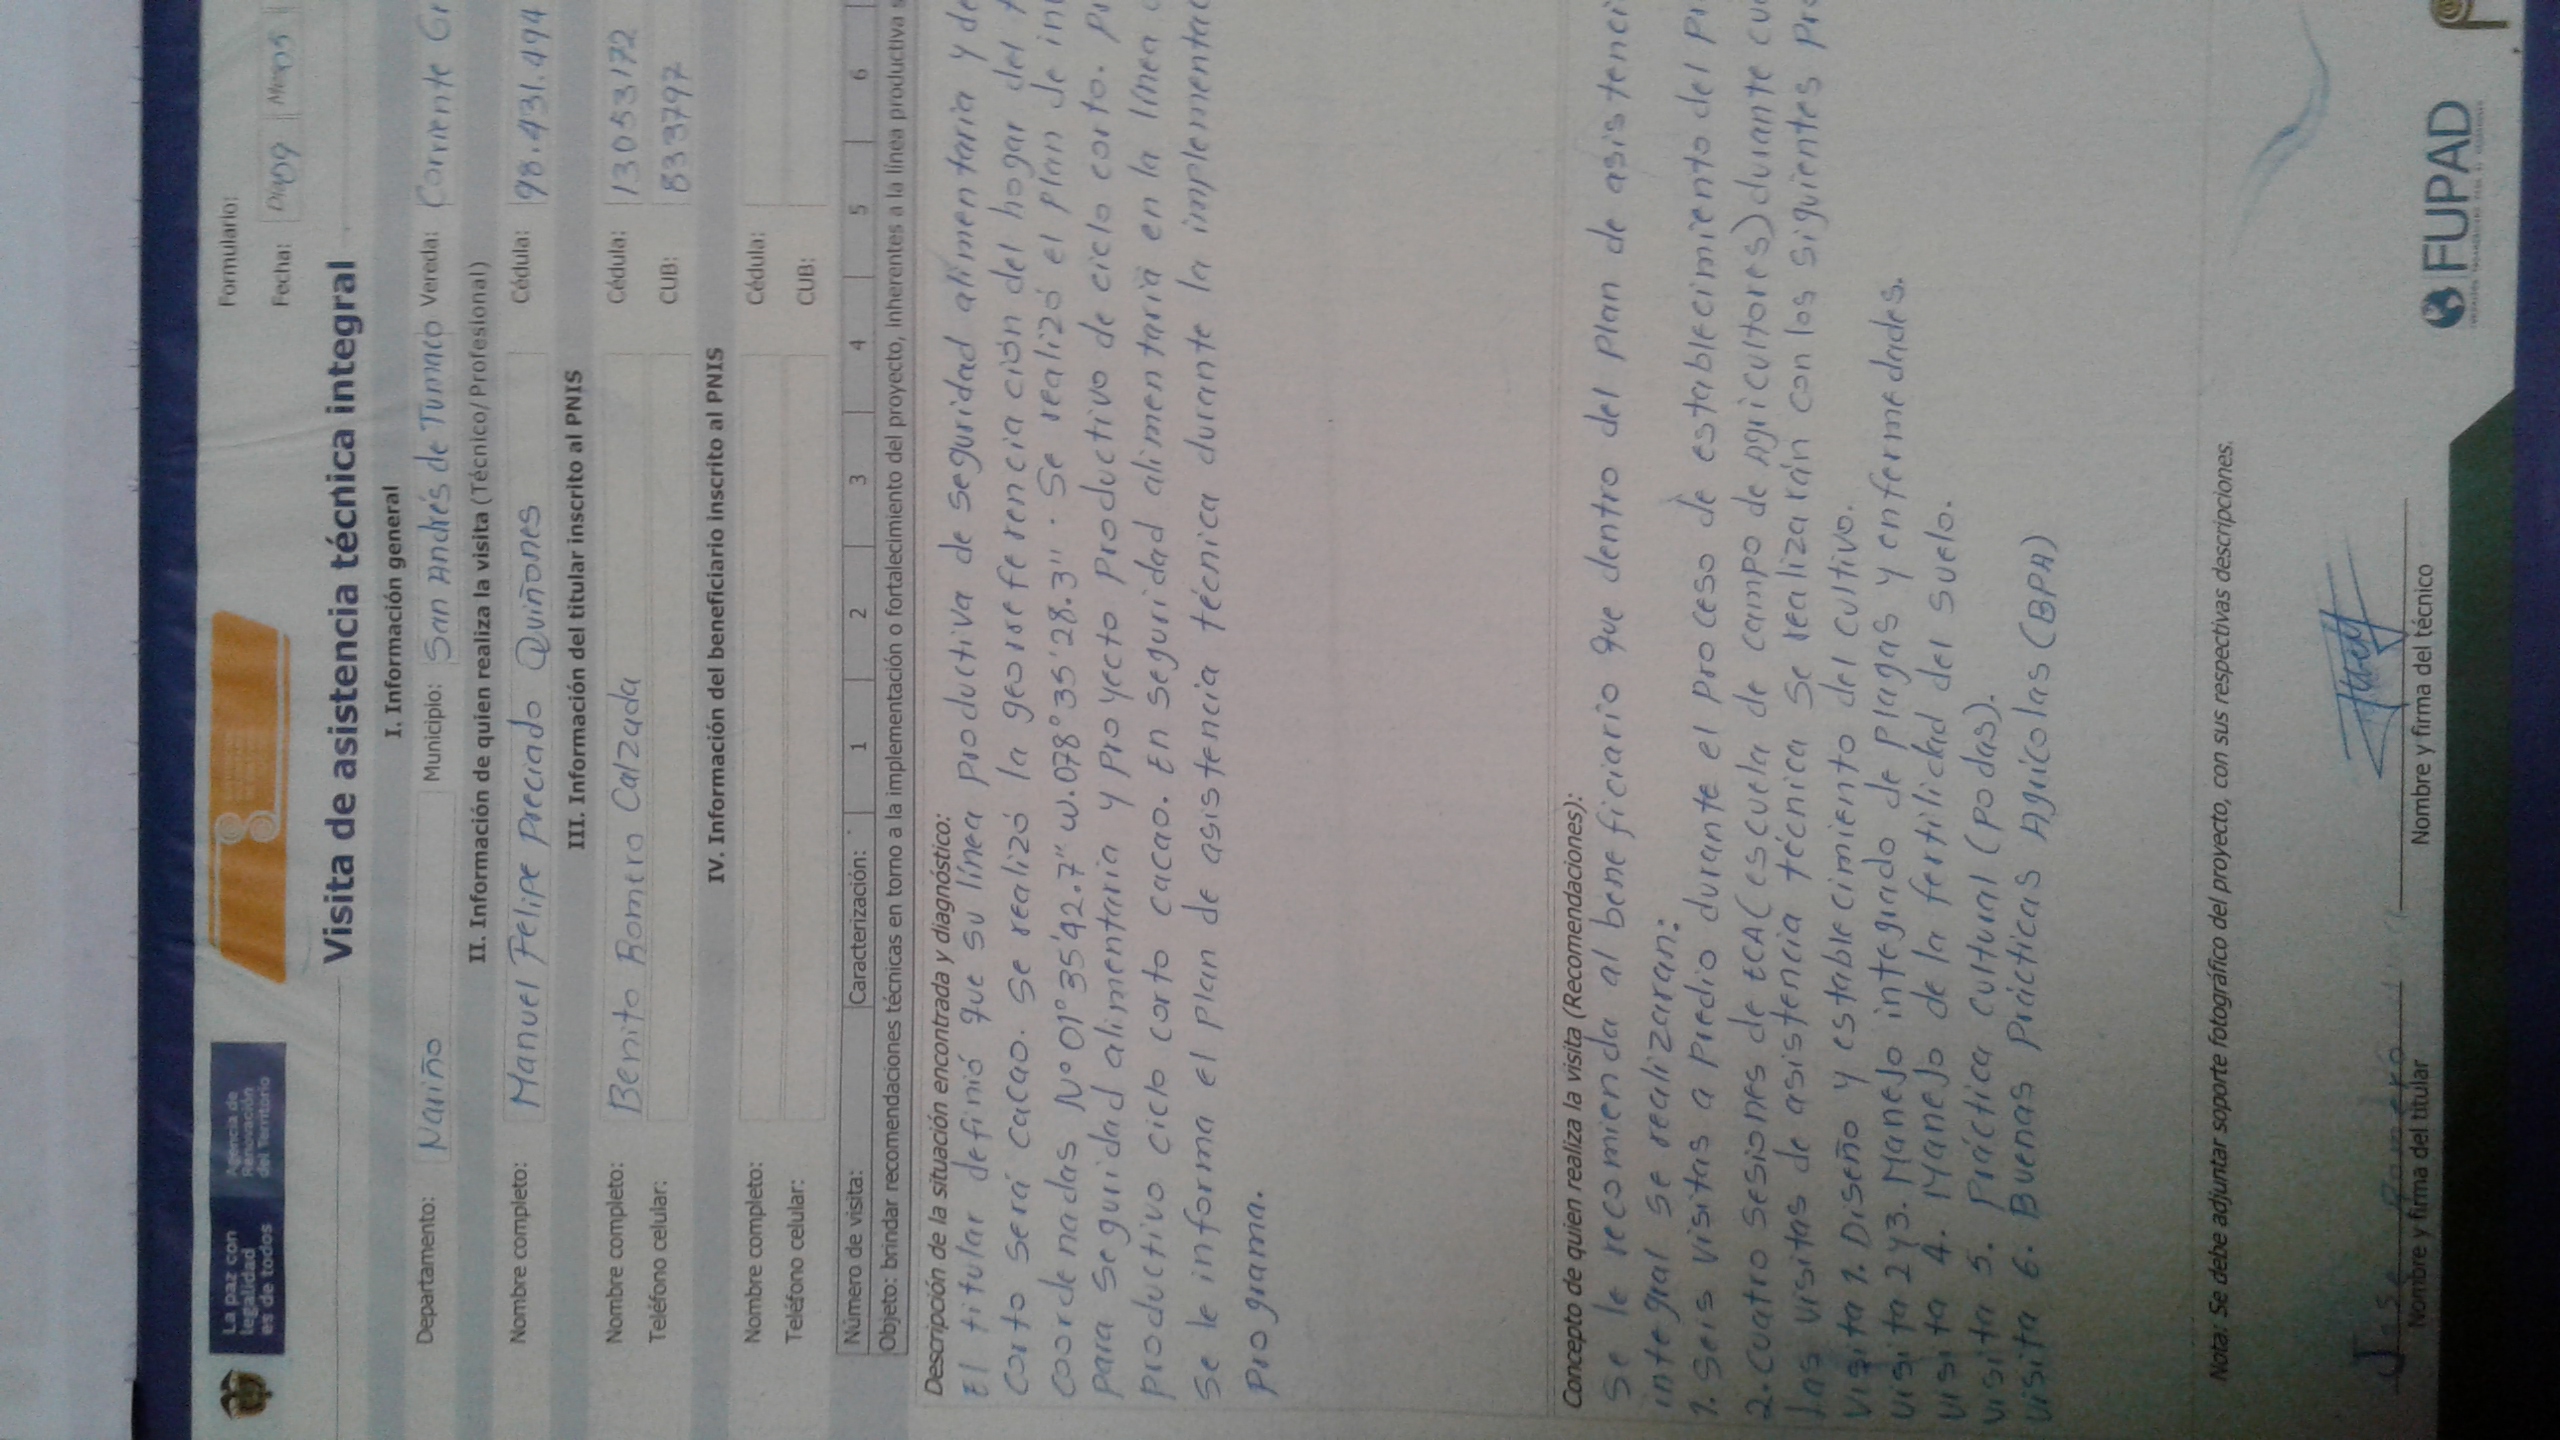 La paz con
legalidad
es de todos
Agencia de
Renovación
del Territorio
Formulario:
Fecha: Día 09 Mes 05
Visita de asistencia técnica integral
I. Información general
Departamento: Nariño Municipio: San Andrés de Tumaco Vereda: Corriente Gr
II. Información de quien realiza la visita (Técnico/Profesional)
Nombre completo: Manuel Felipe Preciado Quiñones Cédula: 98.431.494
III. Información del titular inscrito al PNIS
Nombre completo: Benito Romero Calzada Cédula: 13053172
Teléfono celular: CUB: 833797
IV. Información del beneficiario inscrito al PNIS
Nombre completo: Cédula:
Teléfono celular: CUB:
Número de visita: Caracterización: 1 2 3 4 5 6
Objeto: brindar recomendaciones técnicas en torno a la implementación o fortalecimiento del proyecto, inherentes a la línea productiva s
Descripción de la situación encontrada y diagnóstico:
El titular definió que su línea productiva de seguridad alimentaria y de
corto será cacao. Se realizó la georreferenciación del hogar del t
coordenadas N° 01°35'42.7" W.078°35'28.3". Se realizó el plan de in
para seguridad alimentaria y proyecto productivo de ciclo corto. P
productivo ciclo corto cacao. En seguridad alimentaria en la línea
Se le informa el plan de asistencia técnica durante la implementac
programa.
Concepto de quien realiza la visita (Recomendaciones):
Se le recomienda al beneficiario que dentro del plan de asistenci
integral se realizaran:
1. Seis visitas a predio durante el proceso de establecimiento del pr
2. Cuatro sesiones de ECA (escuela de campo de agricultores) durante cu
las visitas de asistencia técnica se realizarán con los siguientes pr
visita 1. Diseño y establecimiento del cultivo.
visita 2 y 3. Manejo integrado de plagas y enfermedades.
visita 4. Manejo de la fertilidad del suelo.
visita 5. Práctica cultural (podas).
visita 6. Buenas Prácticas Agrícolas (BPA)
Nota: Se debe adjuntar soporte fotográfico del proyecto, con sus respectivas descripciones.
Nombre y firma del titular
Nombre y firma del técnico
FUPAD